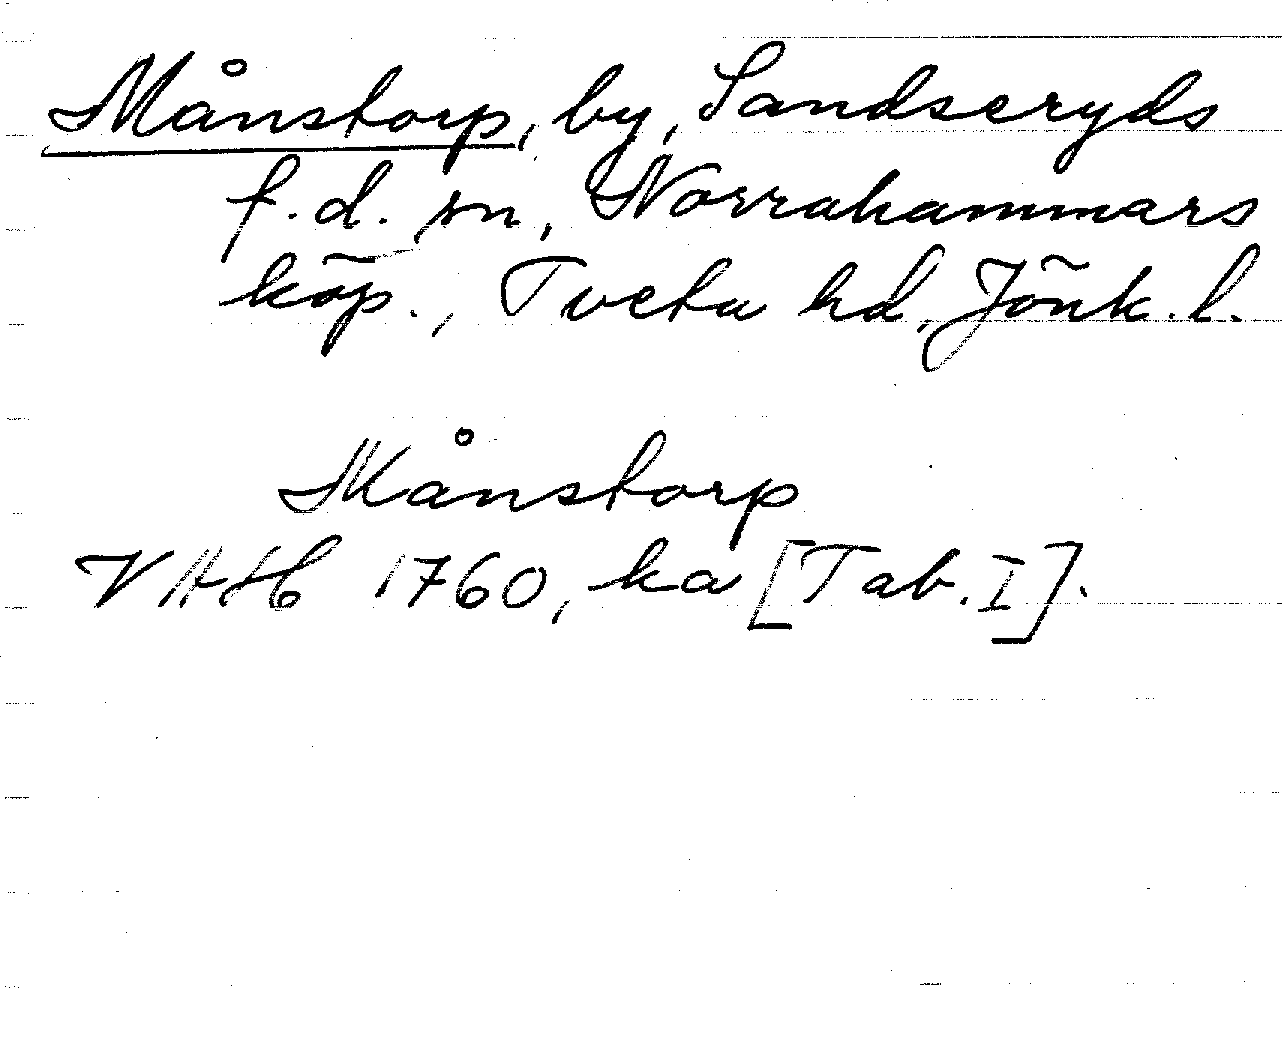 Månstorp, by, Sandseryds
f.d. sn, Norrahammars
köp., Tveta hd, Jönk. l.
Månstorp
VAH 1760, ka [Tab. I].